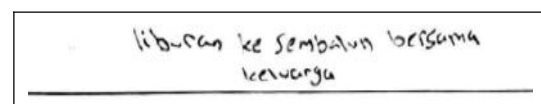 liburan ke sembalun bersama
keluarga